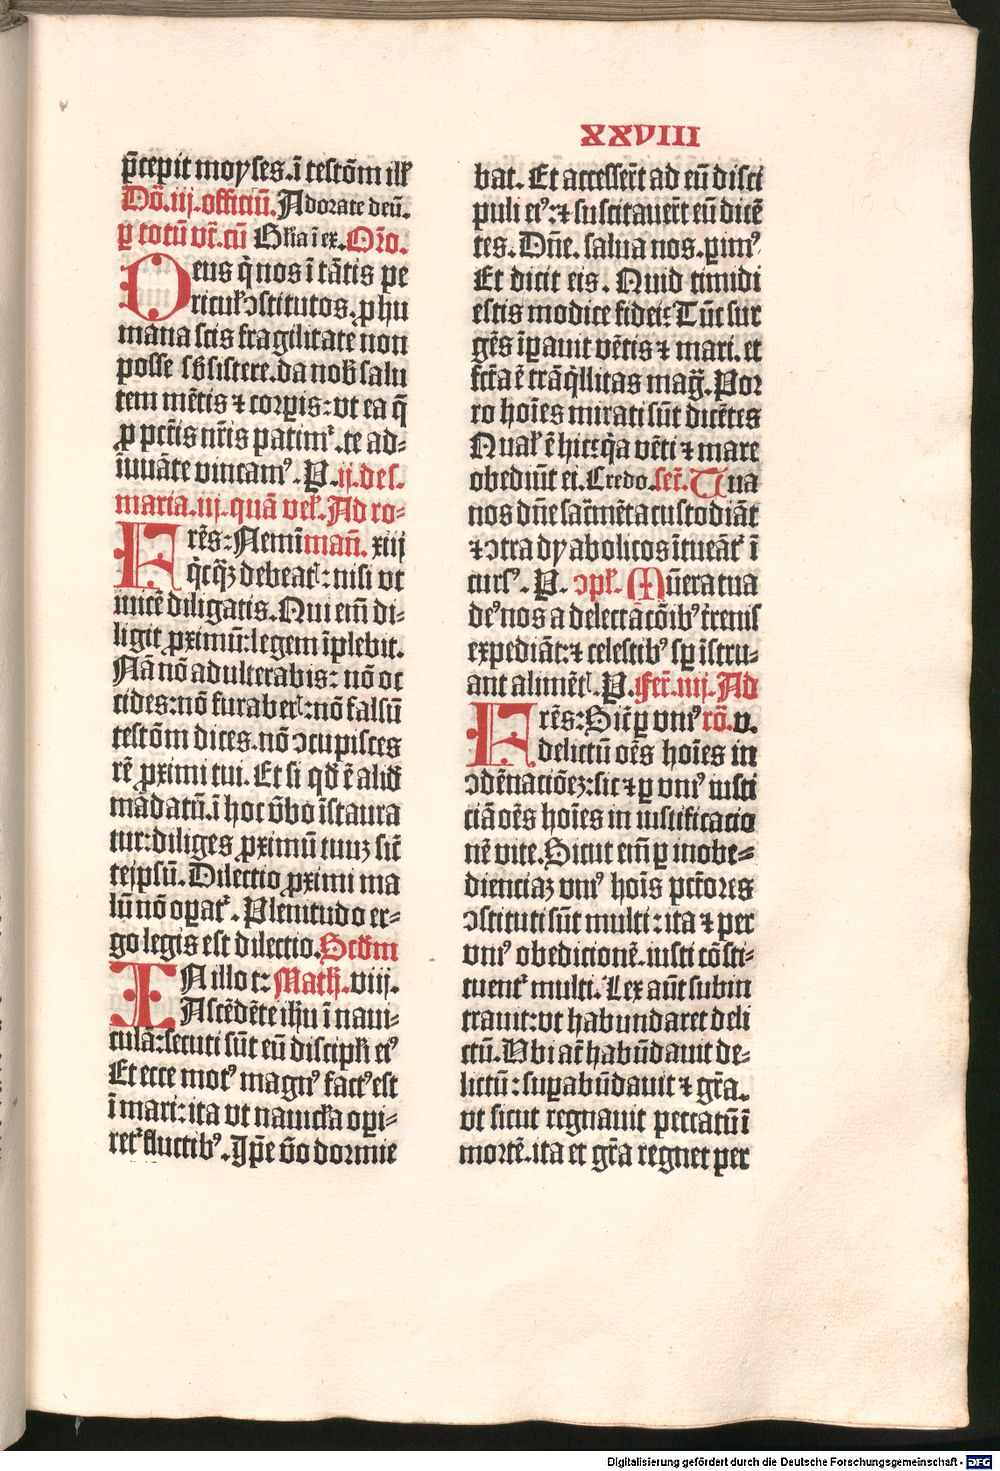 XXVIII
p̄cepit moyses.ī testōm illꝰ
Dō.iij.officiū. Adorate deū.
ꝑ totū vt̄.cū Gl̄ia ī ex. Or̄o.
Deus q̇ nos ī tātis pe
ricul' ↄstitutos.ꝓ hu
mana scis fragilitate non
posse sb̄sistere.da nob̄ salu
tem mētis ⁊ corꝑis: vt ea q̄
ꝓ pctīs nr̄is patimᷣ.te ad⸗
iuuāte vincamꝰ. P. ij.des.
maria.iij.quā vel'. Ad ro⸗
Frēs: Nemi mañ. xiij
q̇cq̄ꝫ debeatᷣ: nisi vt
inuicē diligatis. Qui eīm di⸗
ligit ꝓximū: legem īplebit.
Nā nō adulterabis: nō oc
cides: nō furaberᷣ: nō falsū
testōm dices. nō ↄcupisces
rē ꝓximi tui. Et si qđ ē aliđ
mādatū.ī hoc v̄bo īstaura
tur: diliges ꝓximū tuuꝫ sic̄
teipsū. Dilectio ꝓximi ma
lū nō oꝑatᷣ. Plenitudo er⸗
go legis est dilectio. Scdm̄
IN illo t: Math̄. viij.
Ascēdēte ih̄u ī naui⸗
culā: secuti sūt eū discipl'i eiꝰ
Et ecce motꝰ magnꝰ factꝰ est
ī mari: ita vt nauicl'a oꝑi⸗
retᷣ fluctibꝰ. Ip̄e v̄o dormie
bat. Et accesser̄t ad eū disci
puli eiꝰ: ⁊ suscitauer̄t eū dicē
tes. Dn̄e. salua nos. ꝑimꝰ
Et dicit eis. Quid timidi
estis modice fidei: Tūc sur
gēs īꝑauit vētis ⁊ mari. et
fct̄a ē trāq̇llitas mag̅. Por
ro hoīes mirati sūt dicētes
Qual' ē hic: q̇a vēti ⁊ mare
obediūt ei. Credo. secr̄. Tua
nos dn̄e sacr̄mēta custodiāt
⁊ ↄtra dyabolicos ītueātᷣ ī
cursꝰ. P. ↄpl'. Mūera tua
deꝰ nos a delectacōibꝰ t̄renis
expediāt: ⁊ celestibꝰ sꝑ īstru⸗
ant alimētᷣ. P. Fer̄. iiij. Ad
Frēs: Sic̄ ꝑ vniꝰ rō. v.
delictū oēs hoīes in
ↄdēnacioēꝫ: sic ⁊ ꝑ vniꝰ iusti
ciā oēs hoīes in iustificacio
nē vite. Sicut eīm ꝑ inobe⸗
dienciaꝫ vniꝰ hoīs pctōres
ↄstituti sūt multi: ita ⁊ per
vniꝰ obedicionē. iusti cōsti⸗
tuentᷣ multi. Lex aūt subin
trauit: vt habundaret deli
ctū. Ubi at̄ habūdauit de⸗
lictū: suꝑabūdauit ⁊ gr̄a.
vt sicut regnauit peccatū ī
mortē. ita et gr̄a regnet per
Digitalisierung gefördert durch die Deutsche Forschungsgemeinschaft - DFG